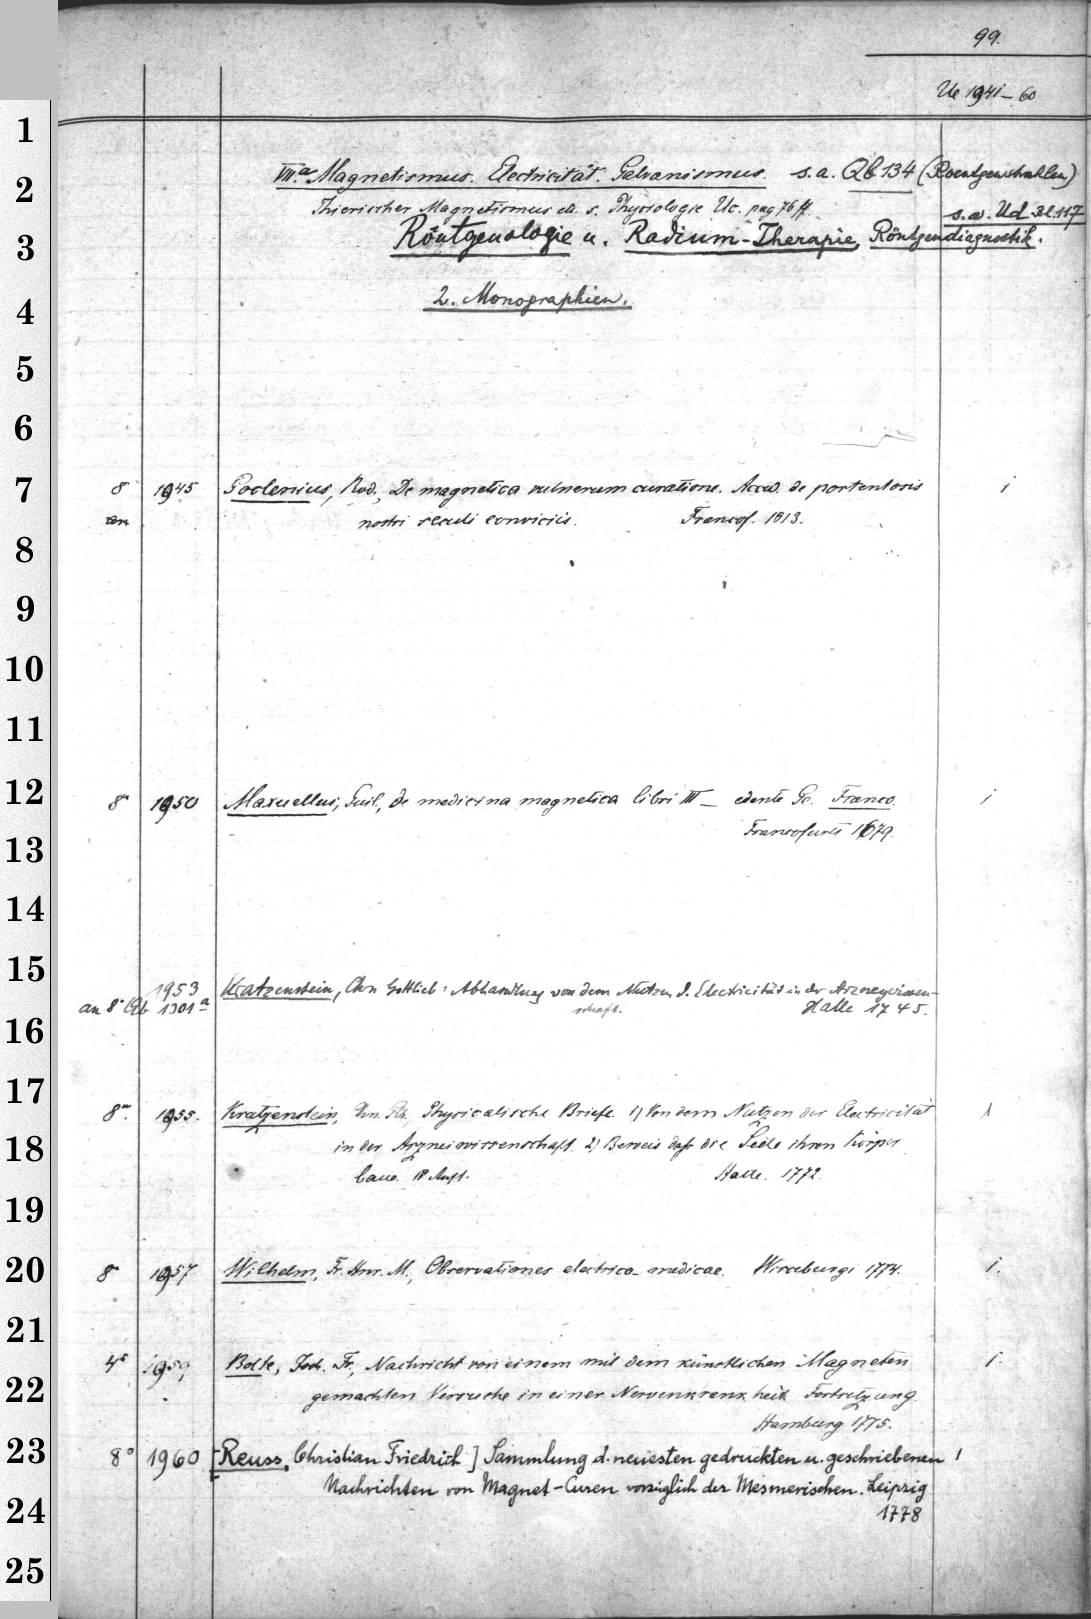 99.
Ue 1941-60
VIII.a Magnetismus. Electricität. Galvanismus. s.a. Qb 134 (Roentgenstrahlen)
Thierischer Magnetismus etc. s. Physiologie Uc. pag 76 ff.
s.a. Ud 117
Röntgenologie u. Radium-Therapie, Röntgendiagnostik.
2. Monographien.
8 1945 Goclenius, Rod., De magnetica vulnerum curatione. Acced. de portentosis i
an nostri seculi conviciis. Francof. 1613.
8° 1950 Maxuellus, Guil., de medicina magnetica libri III – edente Ge. Franco. i
Francofurti 1679.
1953 Kratzenstein, Chrn Gottlieb: Abhandlung von dem Nutzen d. Electricität in der Arzneywissen-
an 8° Qb 1301a schaft. Halle 1745.
8° 1955. Kratzenstein, Chn. Gb., Physicalische Briefe. 1) Von dem Nutzen der Electricität
in der Arzneiwissenschaft. 2) Beweis daß die Seele ihren Körper
baue. Aufl. Halle. 1772.
8° 1957 Wilhelm, Fr. Hnr. M., Observationes electrico-medicae. Wirceburgi 1774. i.
4° 1959, Bolte, Joh. Fr., Nachricht von einem mit dem künstlichen Magneten i.
gemachten Versuche in einer Nervenkrankheit Fortsetzung
Hamburg 1775.
8° 1960 [Reuss, Christian Friedrich] Sammlung d. neuesten gedruckten u. geschriebenen 1
Nachrichten von Magnet-Curen vorzüglich der Mesmerischen. Leipzig
1778
1
2
3
4
5
6
7
8
9
10
11
12
13
14
15
16
17
18
19
20
21
22
23
24
25